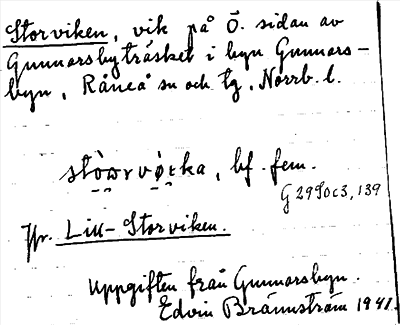 Storviken, vik på Ö. sidan av
Gunnarsbyträsket i byn Gunnars-
byn, Råneå sn och tg, Norrb. l.
bf. fem.
G 2990c3, 139
Jfr. Lill-Storviken.
Uppgiften från Gunnarsbyn.
Edvin Brännström 1941.